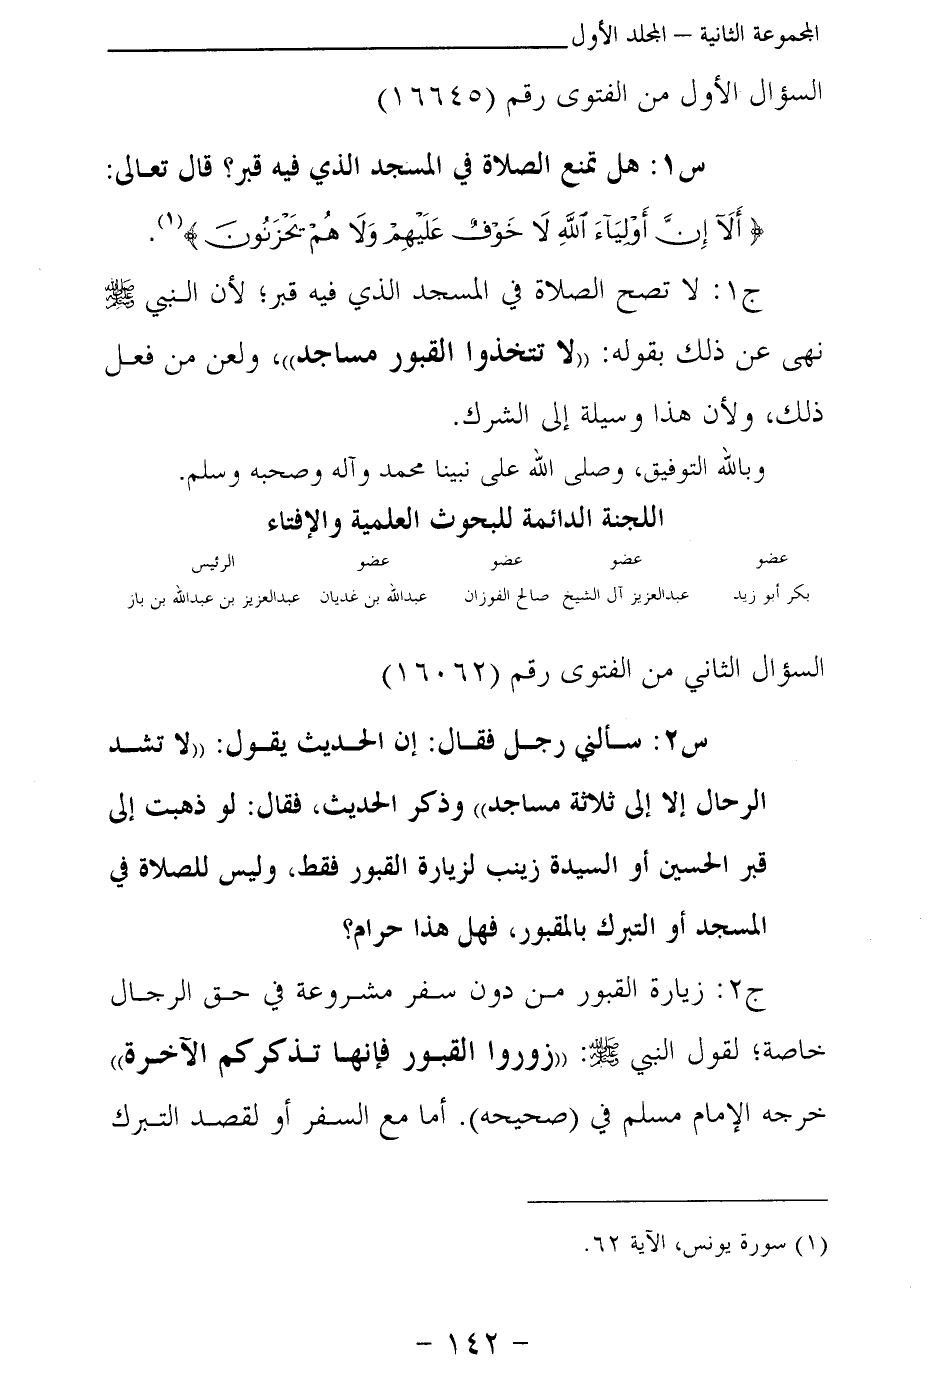 المجموعة الثانية – المجلد الأول
السؤال الأول من الفتوى رقم (١٦٦٤٥)
س١: هل تمنع الصلاة في المسجد الذي فيه قبر؟ قال تعالى:
﴿ أَلَآ إِنَّ أَوْلِيَآءَ ٱللَّهِ لَا خَوْفٌ عَلَيْهِمْ وَلَا هُمْ يَحْزَنُونَ ﴾(١).
ج١: لا تصح الصلاة في المسجد الذي فيه قبر؛ لأن النبي ﷺ
نهى عن ذلك بقوله: ((لا تتخذوا القبور مساجد))، ولعن من فعل
ذلك، ولأن هذا وسيلة إلى الشرك.
وبالله التوفيق، وصلى الله على نبينا محمد وآله وصحبه وسلم.
اللجنة الدائمة للبحوث العلمية والإفتاء
عضو عضو عضو عضو الرئيس
بكر أبو زيد عبدالعزيز آل الشيخ صالح الفوزان عبدالله بن غديان عبدالعزيز بن عبدالله بن باز
السؤال الثاني من الفتوى رقم (١٦٠٦٢)
س٢: سألني رجل فقال: إن الحديث يقول: ((لا تشد
الرحال إلا إلى ثلاثة مساجد)) وذكر الحديث، فقال: لو ذهبت إلى
قبر الحسين أو السيدة زينب لزيارة القبور فقط، وليس للصلاة في
المسجد أو التبرك بالمقبور، فهل هذا حرام؟
ج٢: زيارة القبور من دون سفر مشروعة في حق الرجال
خاصة؛ لقول النبي ﷺ: ((زوروا القبور فإنها تذكركم الآخرة))
خرجه الإمام مسلم في (صحيحه). أما مع السفر أو لقصد التبرك
(١) سورة يونس، الآية ٦٢.
– ١٤٢ –